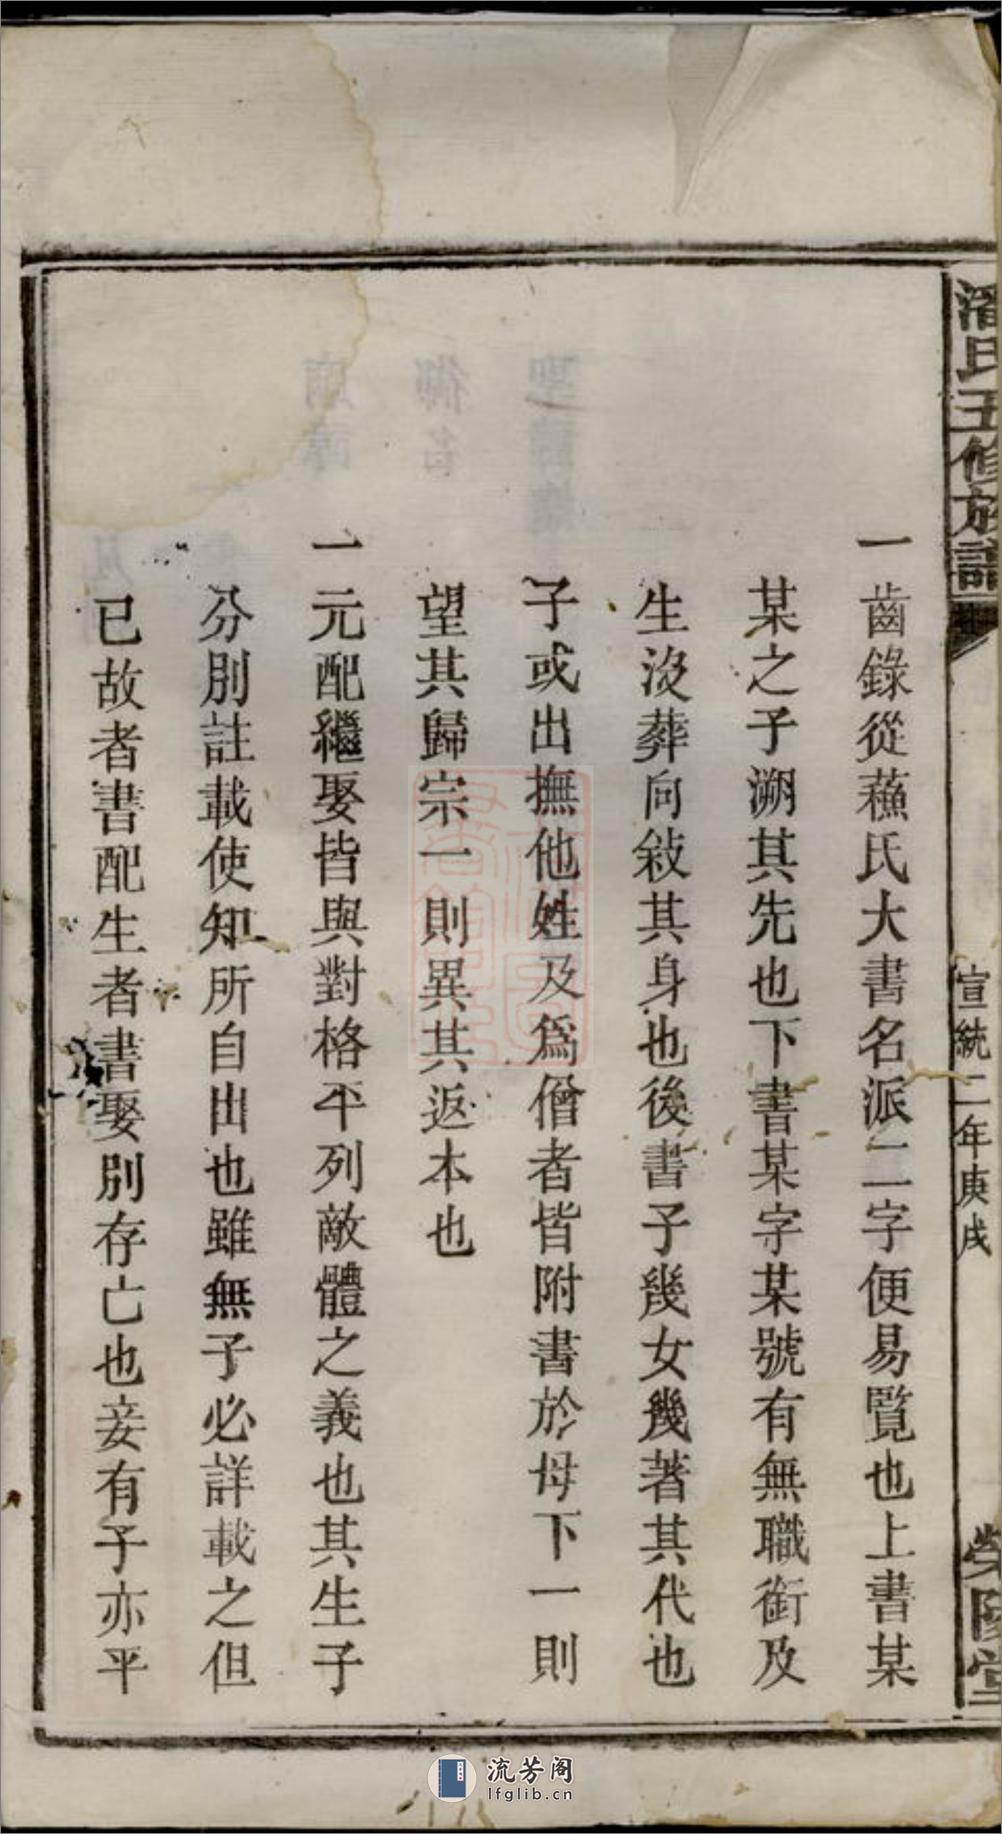 潘氏五修族譜
宣統二年庚戌
榮陽堂
一齒錄從蘓氏大書名派二字便易覽也上書某
某之子溯其先也下書某字某號有無職銜及
生沒葬向敍其身也後書子幾女幾著其代也
子或出撫他姓及爲僧者皆附書於母下一則
望其歸宗一則異其返本也
一元配繼娶皆與對格平列敵體之義也其生子
分別註載使知所自出也雖無子必詳載之但
已故者書配生者書娶別存亡也妾有子亦平
流芳阁
lfglib.cn